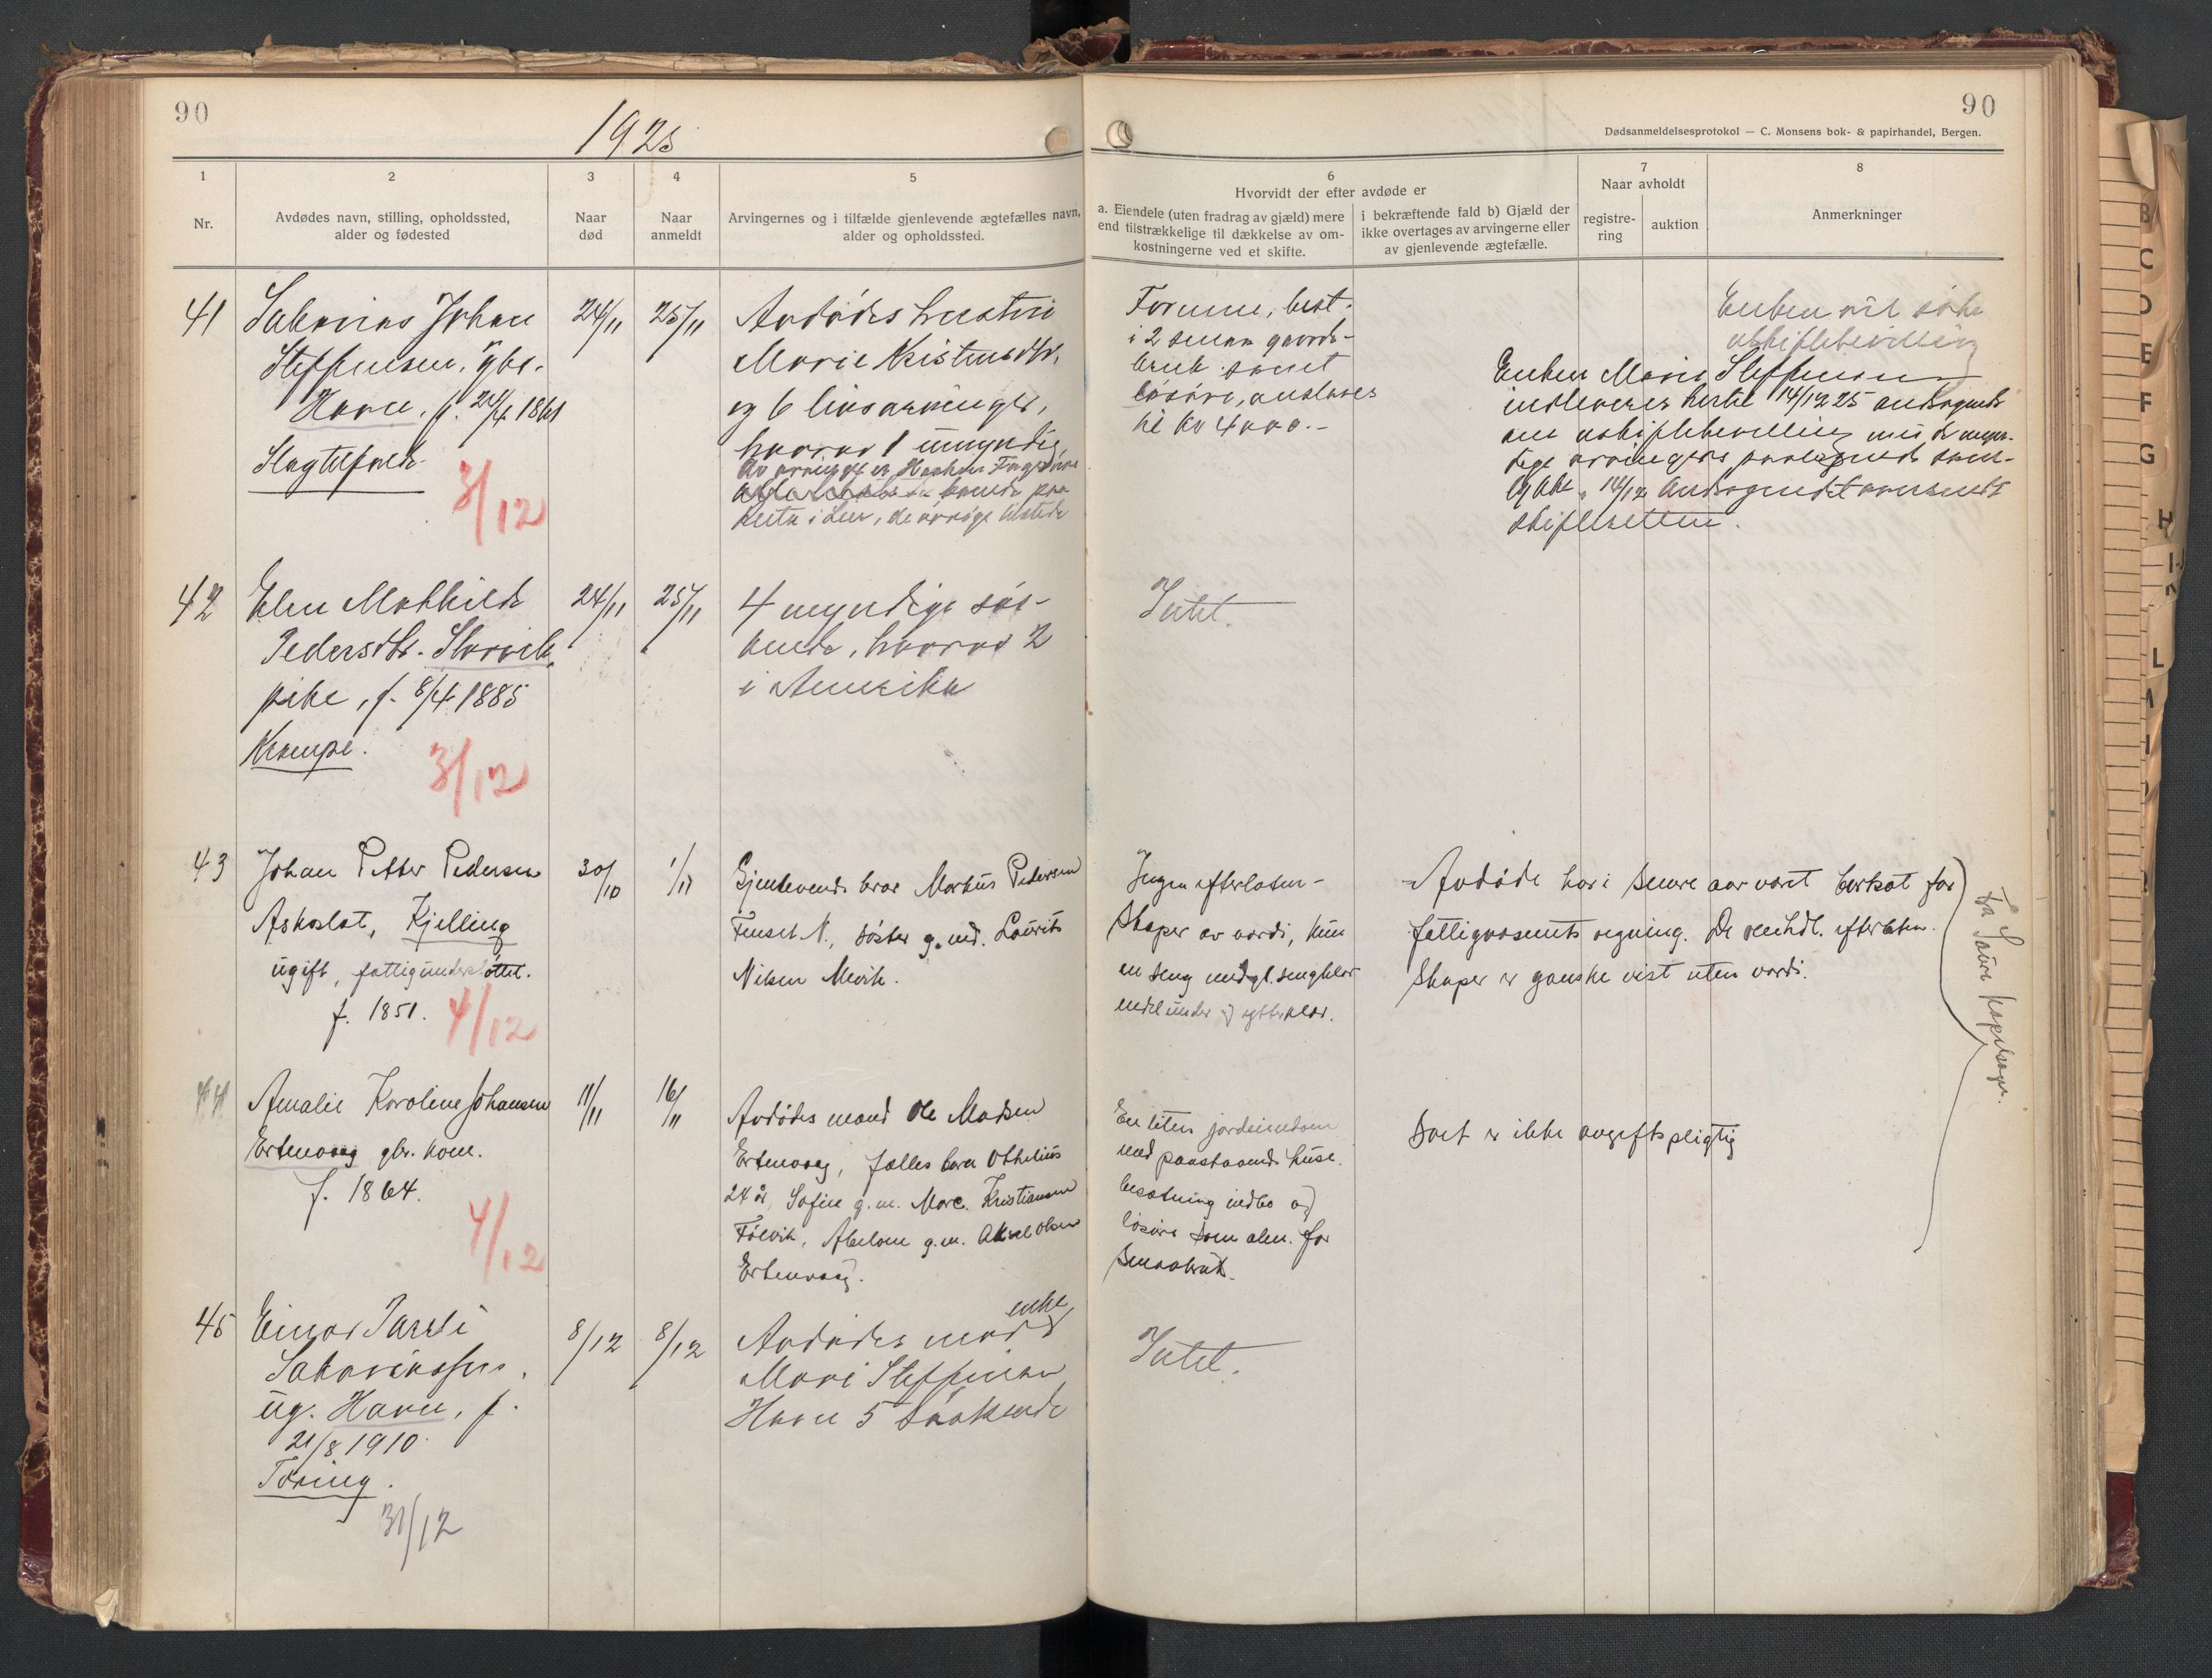 90
1925
1
2
3
4
5
Nr.
Avdødes navn, stilling, opholdssted,
alder og fødested
Naar
død
Naar
anmeldt
Arvingernes og i tilfælde gjenlevende ægtefælles navn,
alder og opholdssted.
41
Sakarias Johan
Steffensen, gbr.
Havn, f. 24/4 1861
Slagtilfælde
3/12
24/11
25/11
Avdødes hustru
Marie Kristensdtr.
og 6 livsarvinger,
hvorav 1 umyndig
42
Elen Mathilde
Pedersdtr. Storvik,
pike, f. 8/4 1885
Krampe.
3/12
24/11
25/11
4 myndige søs-
kende, hvorav 2
i Amerika
43
Johan Petter Pedersen
Askoslat, Kjelling
ugift, fattigunderstøttet.
f. 1851.
4/12
30/10
1/11
Gjenlevende bror Markus Pedersen
Finset N., søster g. md. Laurits
Nilsen Mevik.
44
Amalie Karoline Johansen
Ertenvaag gbr. kone.
f. 1864.
4/12
11/11
16/11
Avdødes mand Ole Madsen
Ertenvaag, fælles barn Othelius
24 år, Sofie g. m. Marc. Kristiansen
g. m. Aksel Olsen
Ertenvaag.
45
Einar Pareli
Sakariassen,
ug. Havn, f.
21/8 1910.
Tæring.
31/12
8/12
8/12
enke
Avdødes mor
Mari Steffensen
Havn 5 søskende
90
Dødsanmeldelsesprotokol — C. Monsens bok- & papirhandel, Bergen.
6
Hvorvidt der efter avdøde er
a. Eiendele (uten fradrag av gjæld) mere
end tilstrækkelige til dækkelse av om-
kostningerne ved et skifte.
i bekræftende fald b) Gjæld der
ikke overtages av arvingerne eller
av gjenlevende ægtefælle.
7
Naar avholdt
registre-
ring
auktion
8
Anmerkninger
Formue, best.
i 2 smaa gaards-
bruk samt
løsøre, anslaaes
til kr 4000.-
Enken vil søke
uskiftebevilling
Enken Marie Steffensen
indleverer hertil 14/12 25 andragende
om uskiftebevilling med de myn-
dige arvingers paategnede sam-
tykke. 14/12 Andragendet oversendt
skifteretten.
Intet.
Ingen efterlaten-
skaper av værdi, kun
en seng med gl. sengklær
endel under og ytterklær.
Avdøde har i senere aar været berksat for
fattigvæsenets regning. De omhdl. efterlaten-
skaper er ganske vist uten værdi.
En liten jordeiendom
med paastaaende huse.
besætning indbo og
løsøre som alm. for
smaabruk.
Boet er ikke avgiftspligtig
Fra Saura kapelsogn.
Intet.
B
C
D
E
F
G
H
I-J
K
L